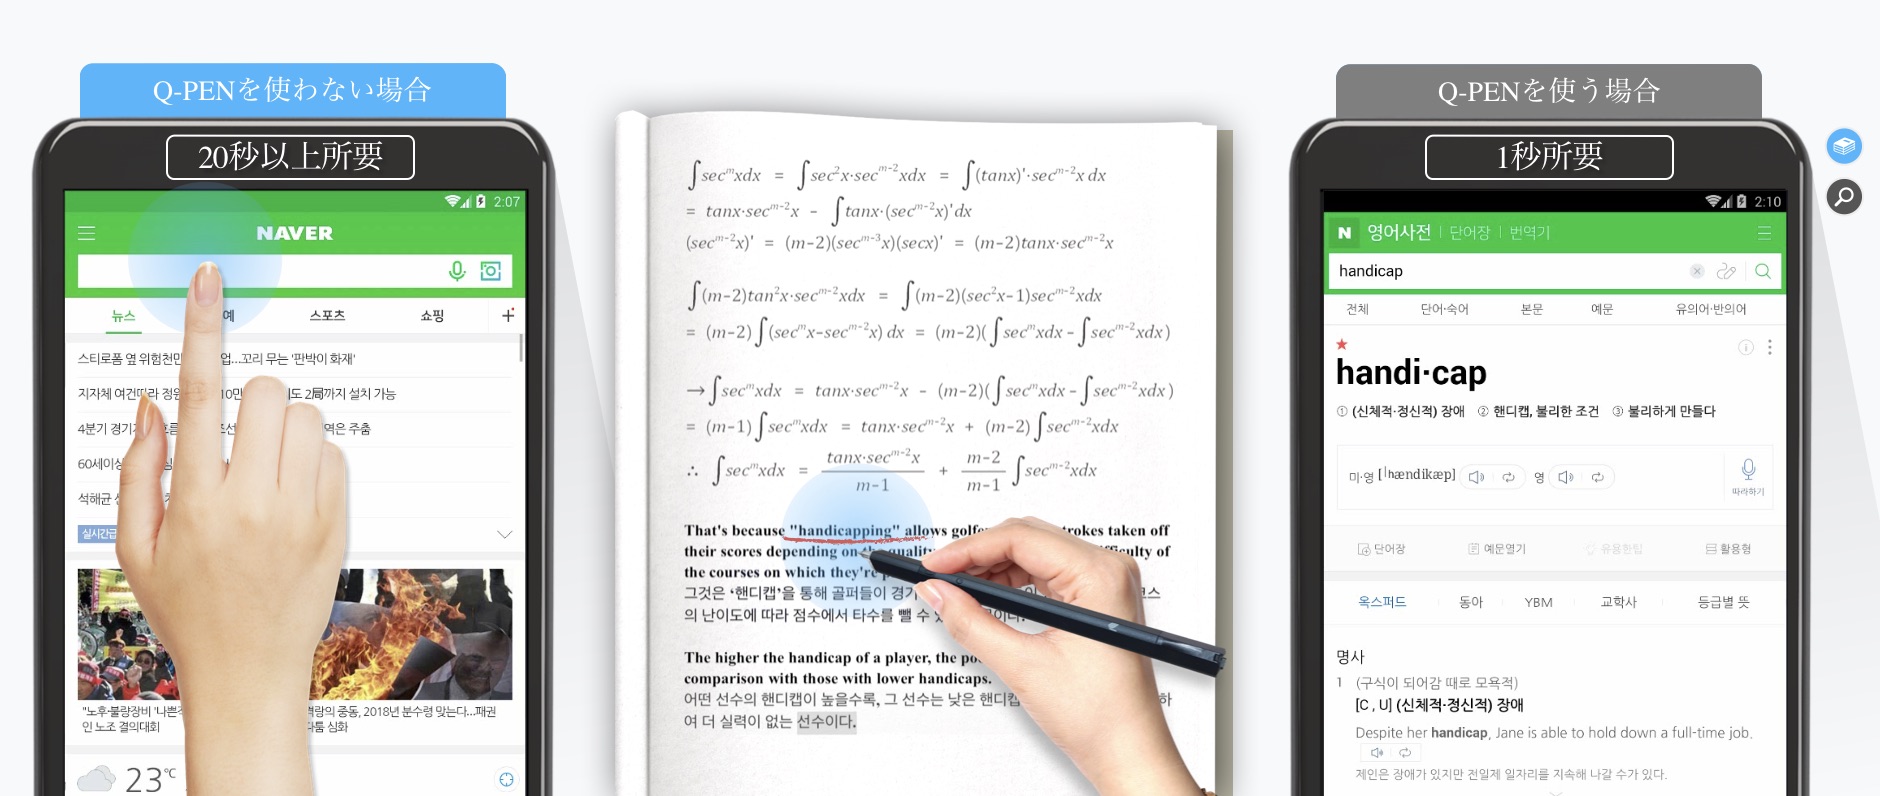 Q-PENを使わない場合
20秒以上所要
2:07
NAVER
뉴스 예 스포츠 쇼핑 +
스티로폼 옆 위험천만 업...꼬리 무는 '판박이 화재'
지자체 여건따라 정원 10만 도 2局까지 설치 가능
4분기 경기 흐름 조선 역은 주춤
60세이상
석해균
실시간급
"노후·불량장비 '나쁜
인 노조 결의대회
격랑의 중동, 2018년 분수령 맞는다...패권
다툼 심화
23℃
∫sec^m xdx = ∫sec²x·sec^{m-2}xdx = ∫(tanx)'·sec^{m-2}x dx
= tanx·sec^{m-2}x - ∫tanx·(sec^{m-2}x)'dx
(sec^{m-2}x)' = (m-2)(sec^{m-3}x)(secx)' = (m-2)tanx·sec^{m-2}x
∫(m-2)tan²x·sec^{m-2}xdx = ∫(m-2)(sec²x-1)sec^{m-2}xdx
= (m-2)∫(sec^m x-sec^{m-2}x) dx = (m-2)(∫sec^m xdx - ∫sec^{m-2}xdx)
→∫sec^m xdx = tanx·sec^{m-2}x - (m-2)(∫sec^m xdx - ∫sec^{m-2}xdx)
= (m-1)∫sec^m xdx = tanx·sec^{m-2}x + (m-2)∫sec^{m-2}xdx
∴ ∫sec^m xdx = tanx·sec^{m-2}x / m-1 + m-2 / m-1 ∫sec^{m-2}xdx
That's because "handicapping" allows golfe trokes taken off
their scores depending on the quality fficulty of
the courses on which they're p
그것은 '핸디캡'을 통해 골퍼들이 경기 코스
의 난이도에 따라 점수에서 타수를 뺄 수
The higher the handicap of a player, the po
comparison with those with lower handicaps.
어떤 선수의 핸디캡이 높을수록, 그 선수는 낮은 핸디캡 하
여 더 실력이 없는 선수이다.
Q-PENを使う場合
1秒所要
2:10
N 영어사전 | 단어장 | 번역기
handicap
전체 단어·숙어 본문 예문 유의어·반의어
handi·cap
① (신체적·정신적) 장애 ② 핸디캡, 불리한 조건 ③ 불리하게 만들다
미·영 [|hændikæp] 영
따라하기
단어장 예문열기 유용한팁 활용형
옥스퍼드 동아 YBM 교학사 등급별 뜻
명사
1 (구식이 되어감 때로 모욕적)
[C , U] (신체적·정신적) 장애
Despite her handicap, Jane is able to hold down a full-time job.
제인은 장애가 있지만 전일제 일자리를 지속해 나갈 수가 있다.